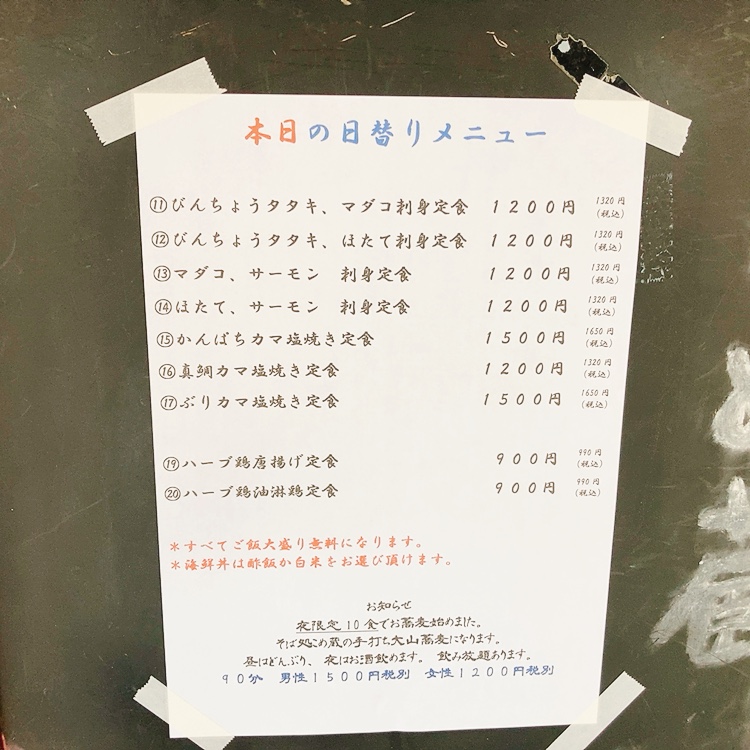 本日の日替りメニュー
⑪びんちょうタタキ、マダコ刺身定食 1200円 1320円(税込)
⑫びんちょうタタキ、ほたて刺身定食 1200円 1320円(税込)
⑬マダコ、サーモン 刺身定食 1200円 1320円(税込)
⑭ほたて、サーモン 刺身定食 1200円 1320円(税込)
⑮かんぱちカマ塩焼き定食 1500円 1650円(税込)
⑯真鯛カマ塩焼き定食 1200円 1320円(税込)
⑰ぶりカマ塩焼き定食 1500円 1650円(税込)
⑲ハーブ鶏唐揚げ定食 900円 990円(税込)
⑳ハーブ鶏油淋鶏定食 900円 990円(税込)
＊すべてご飯大盛り無料になります。
＊海鮮丼は酢飯か白米をお選び頂けます。
お知らせ
夜限定10食でお蕎麦始めました。
そば処こめ蔵の手打ち大山蕎麦になります。
昼はどんぶり、夜はお酒飲めます。 飲み放題あります。
90分 男性1500円税別 女性1200円税別